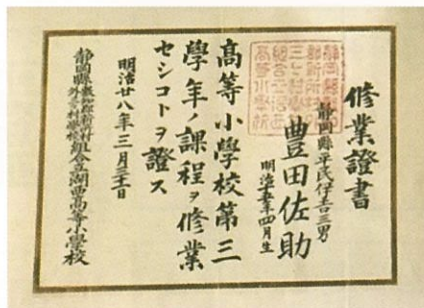 修業證書
静岡縣平民伊吉三男
豊田佐助
明治十五年四月生
高等小學校第三
學年ノ課程ヲ修業
セシコトヲ證ス
明治廿八年三月三十日
静岡縣敷知郡新所村
外三ヶ村學校組合立湖西高等小學校